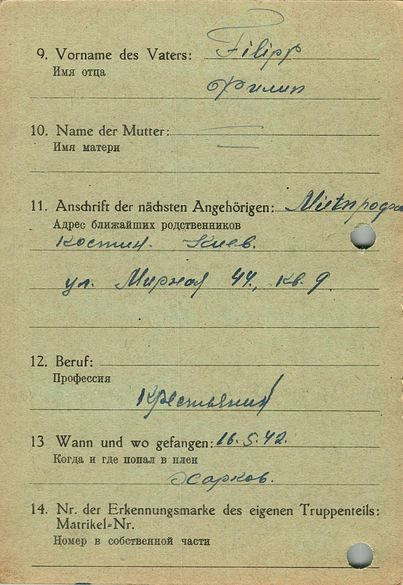 9. Vorname des Vaters: Filipp
Имя отца
Филип
10. Name der Mutter: =
Имя матери
11. Anschrift der nächsten Angehörigen:
Адрес ближайших родственников
Костин. Киев.
ул. Мирная 44, кв. 9
12. Beruf:
Профессия
Крестьянин
13 Wann und wo gefangen: 16.5.42.
Когда и где попал в плен
Харков.
14. Nr. der Erkennungsmarke des eigenen Truppenteils:
Matrikel-Nr.
Номер в собственной части